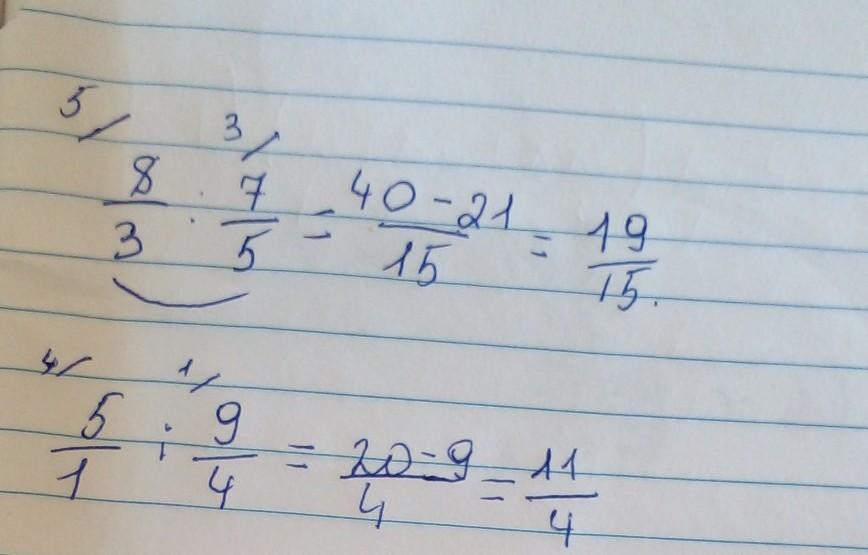 5/ 3/
8/3 : 7/5 = 40-21/15 = 19/15.
4/ 1/
5/1 : 9/4 = 20-9/4 = 11/4